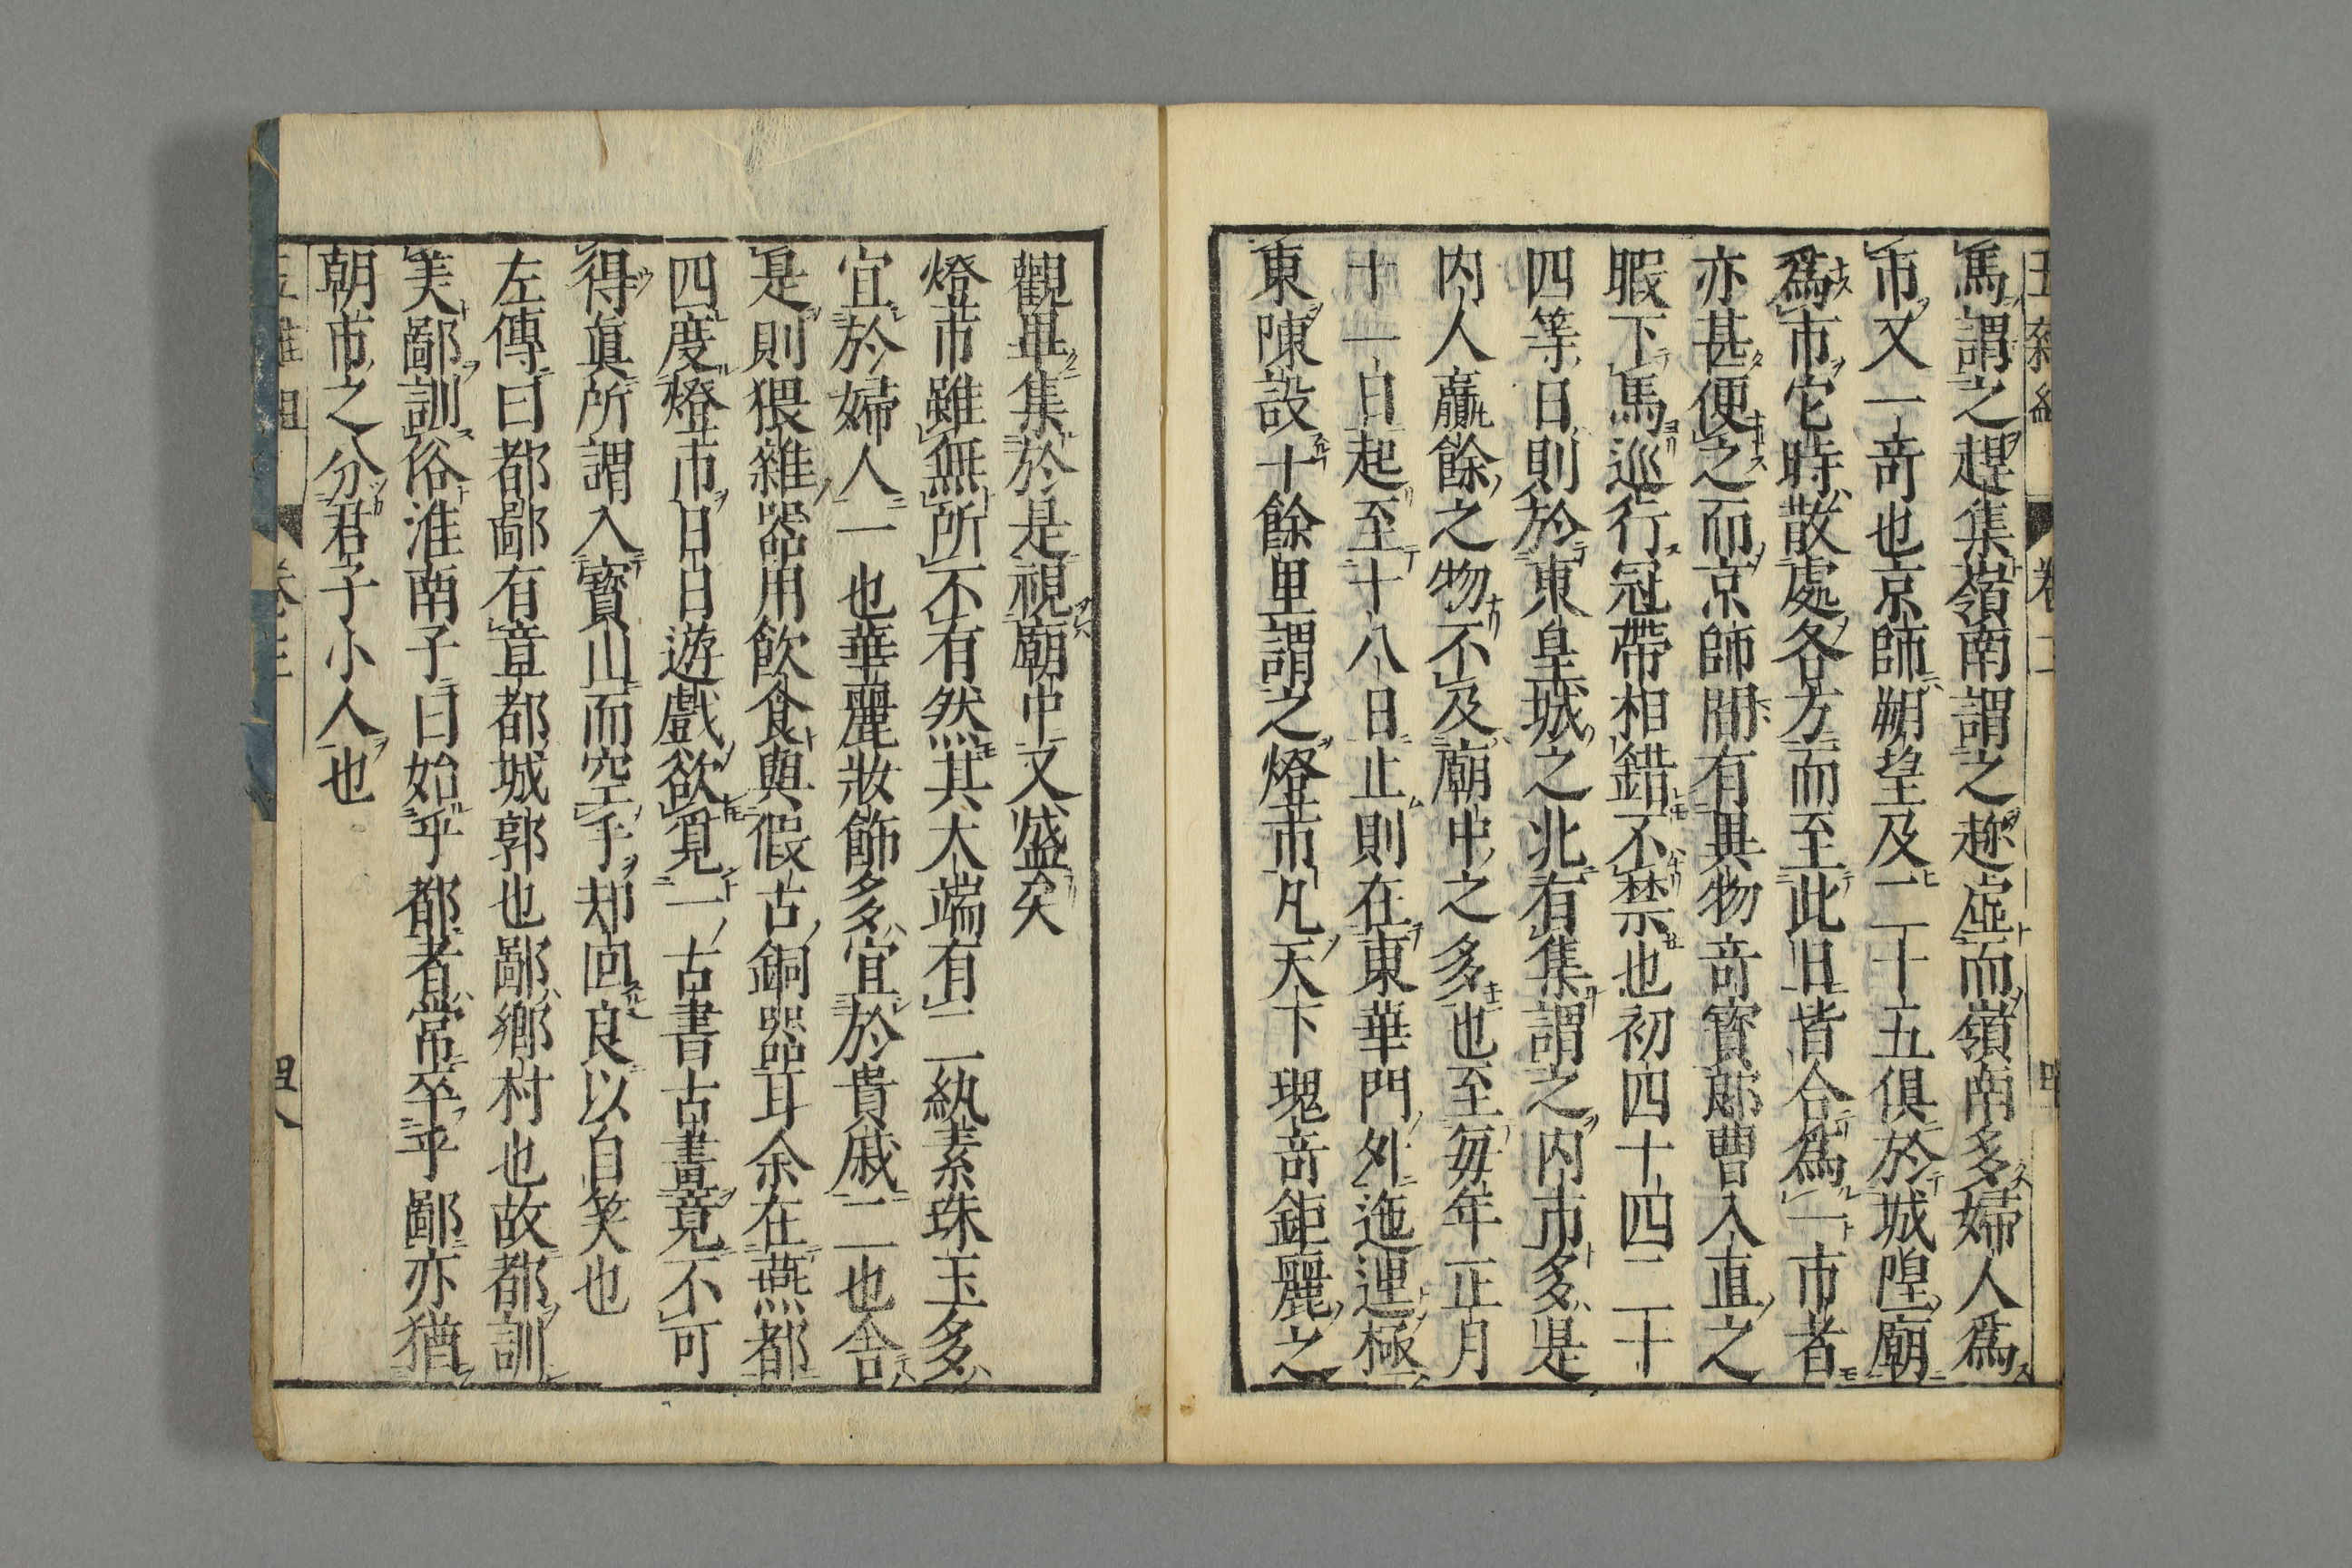 五雜組 卷三
馬謂之趕集嶺南謂之趂虛而嶺南多婦人爲
市又一竒也京師朔望及二十五俱於城隍廟
爲市它時散處各方而至此日皆合爲一市者
亦甚便之而京師間有異物竒寳郎曹入直之
暇下馬巡行冠帶相錯不禁也初四十四二十
四等日則於東皇城之北有集謂之内市多是
内人贏餘之物不及廟中之多也至每年正月
十一日起至十八日止則在東華門外迤逦極
東陳設十餘里謂之燈市凡天下瑰竒鉅麗之
觀畢集於是視廟中又盛矣
燈市雖無所不有然其大端有二紈素珠玉多
宜於婦人一也華麗妝飾多宜於貴戚二也舍
是則猥雜器用飲食與假古銅器耳余在燕都
四度燈市日日遊戲欲覓一古書古畫竟不可
得眞所謂入寳山而空手却回良以自笑也
左傳曰都鄙有章都城郭也鄙鄉村也故都訓
美鄙訓俗淮南子曰始乎都者常卒乎鄙亦猶
朝市之分君子小人也
五雜組 卷三 四八